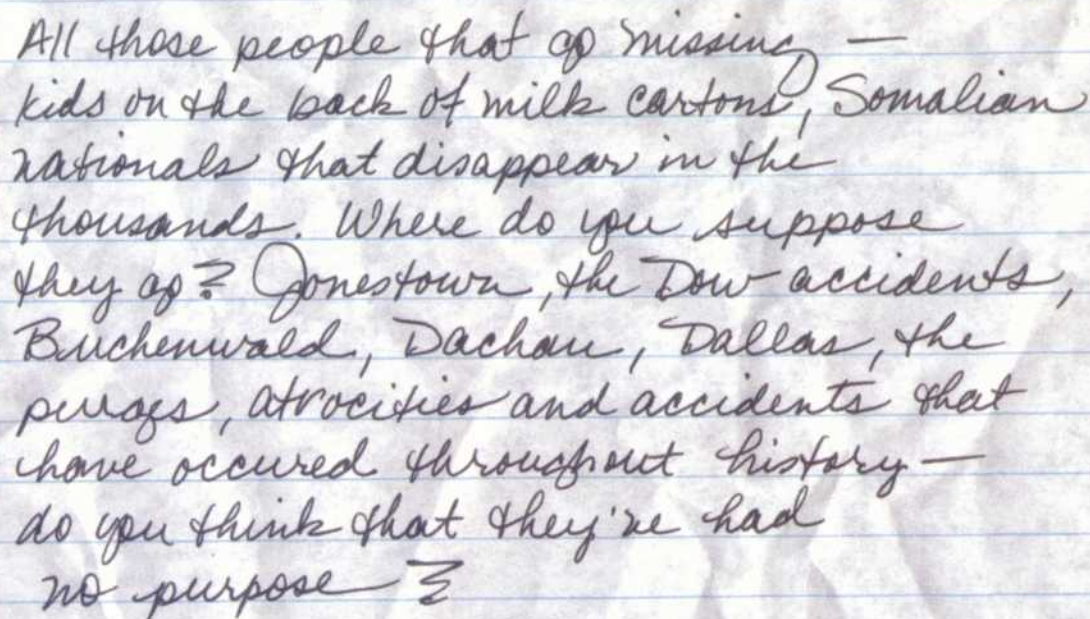 All those people that go missing —
kids on the back of milk cartons, Somalian
nationals that disappear in the
thousands. Where do you suppose
they go? Jonestown, the Dow accidents,
Buchenwald, Dachau, Dallas, the
purges, atrocities and accidents that
have occured throughout history —
do you think that they've had
no purpose?